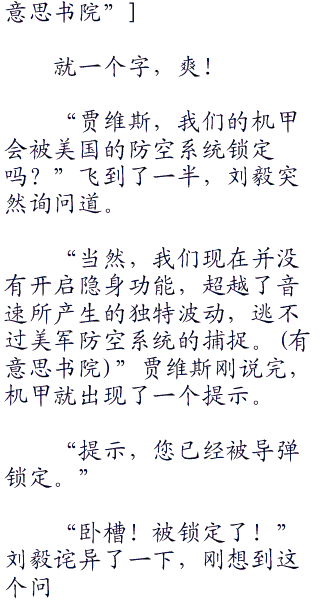 意思书院”]
就一个字，爽！
“贾维斯，我们的机甲
会被美国的防空系统锁定
吗？”飞到了一半，刘毅突
然询问道。
“当然，我们现在并没
有开启隐身功能，超越了音
速所产生的独特波动，逃不
过美军防空系统的捕捉。(有
意思书院)”贾维斯刚说完，
机甲就出现了一个提示。
“提示，您已经被导弹
锁定。”
“卧槽！被锁定了！”
刘毅诧异了一下，刚想到这
个问